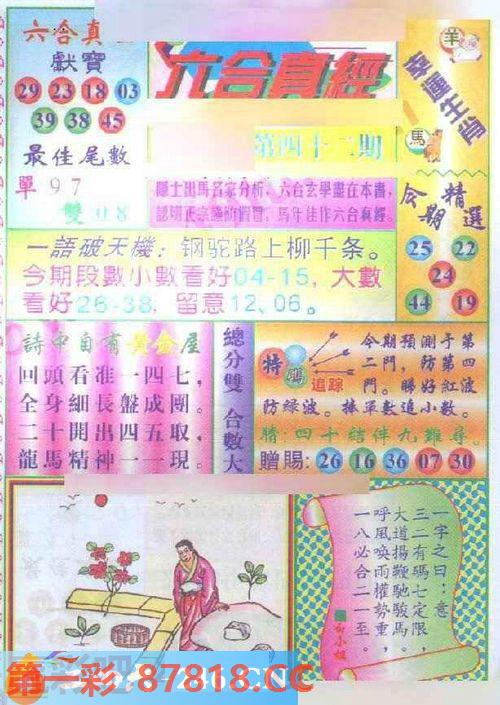 六合真
獻寶
29 23 18 03
39 38 45
最佳尾數
單97
雙08
六合真經
第四十二期
幸運生肖
羊
馬
今期精選
25 22
24
44 19
隱士出馬名家分析、六合玄學盡在本書,
認明正宗
馬年佳作六合真經.
一語破天機:钢驼路上柳千条。
今期段數小數看好04-15,大數
看好26-38,留意12、06。
詩中自有黃金屋
回頭看准一四七,
全身細長盤成團。
二十開出四五取,
龍馬精神一一現。
總分雙 合數大
特碼
追踪
今期預測于第
二門,防第四
門。睇好紅波
防绿波。捧單數追小數。
精:四十結伴九難尋。
贈賜:26 16 36 07 30
一字之曰:意
三二有碼七定限,
大道揚鞭馳駿馬。
呼風喚雨權勢重,
一八必合二一至。
第一彩 87818.CC